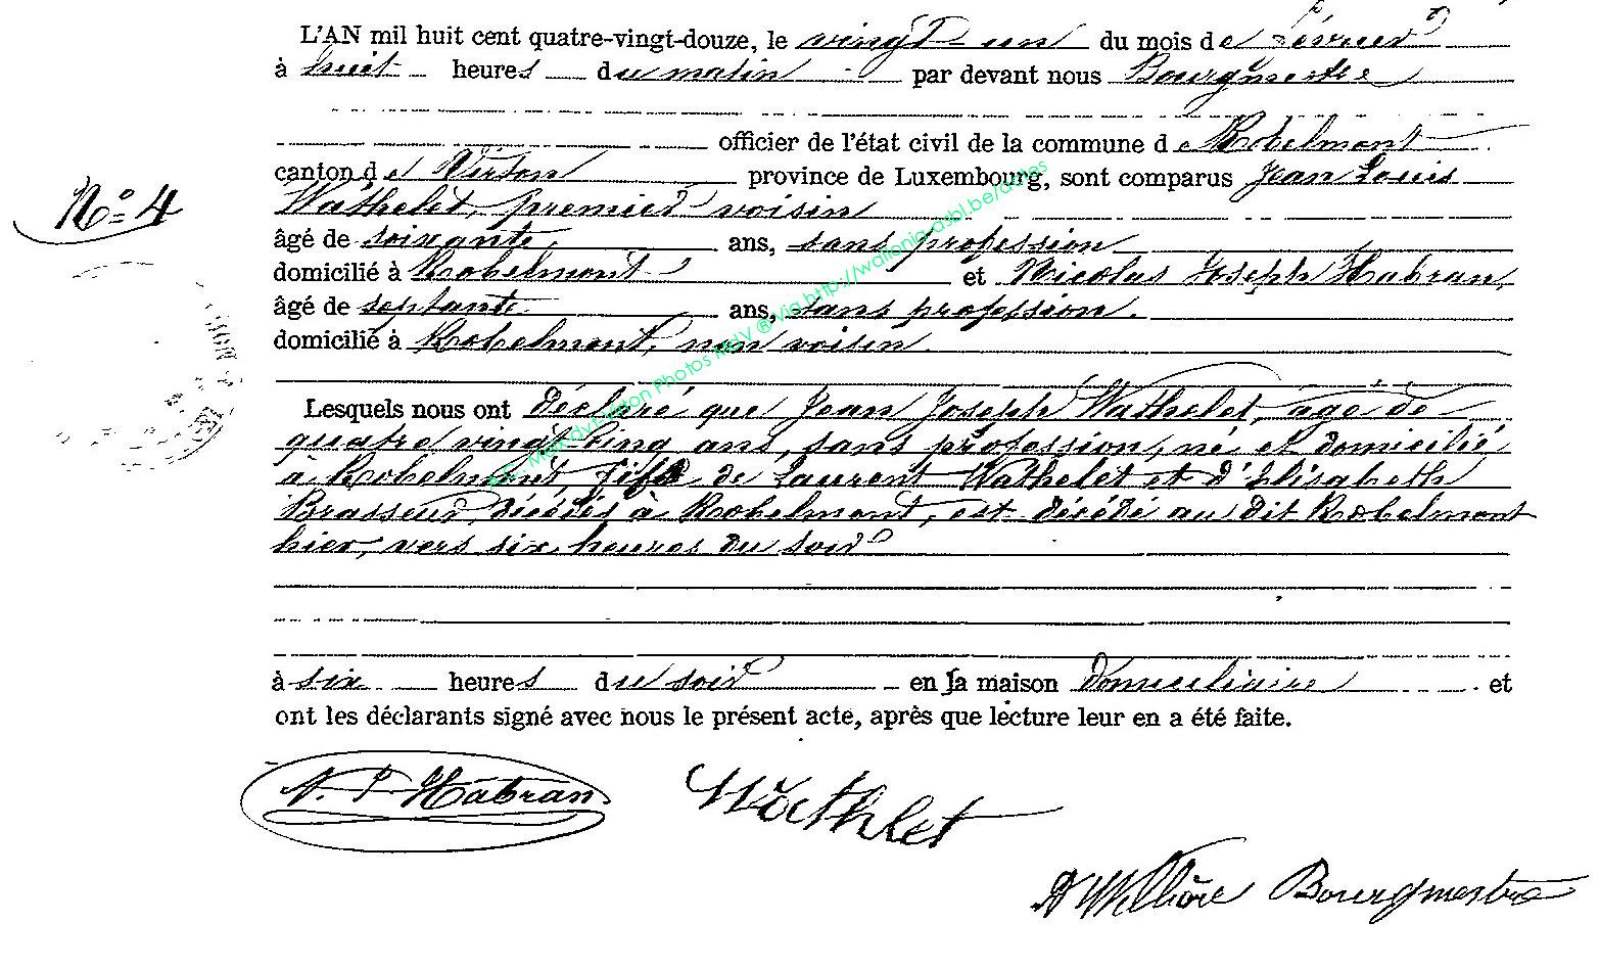 L'AN mil huit cent quatre-vingt-douze, le vingt un du mois de février
à huit heures du matin par devant nous Bourgmestre
officier de l'état civil de la commune de Robelmont
canton de Virton province de Luxembourg, sont comparus Jean Louis
Wathelet, premier voisin
N° 4
âgé de soixante ans, sans profession
domicilié à Robelmont et Nicolas Joseph Habran,
âgé de septante ans, sans profession.
domicilié à Robelmont, non voisin
Lesquels nous ont déclaré que Jean Joseph Wathelet, âgé de
quatre vingt cinq ans, sans profession, né et domicilié
à Robelmont, fils de Laurent Wathelet et d'Elisabeth
Brasseur, décédés à Robelmont, est décédé au dit Robelmont
hier, vers six heures du soir
à six heures du soir en la maison domiciliaire et
ont les déclarants signé avec nous le présent acte, après que lecture leur en a été faite.
N. J Habran
Wathlet
Bourgmestre
Photos MDV ® Via http://wallonia-asbl.be/actes